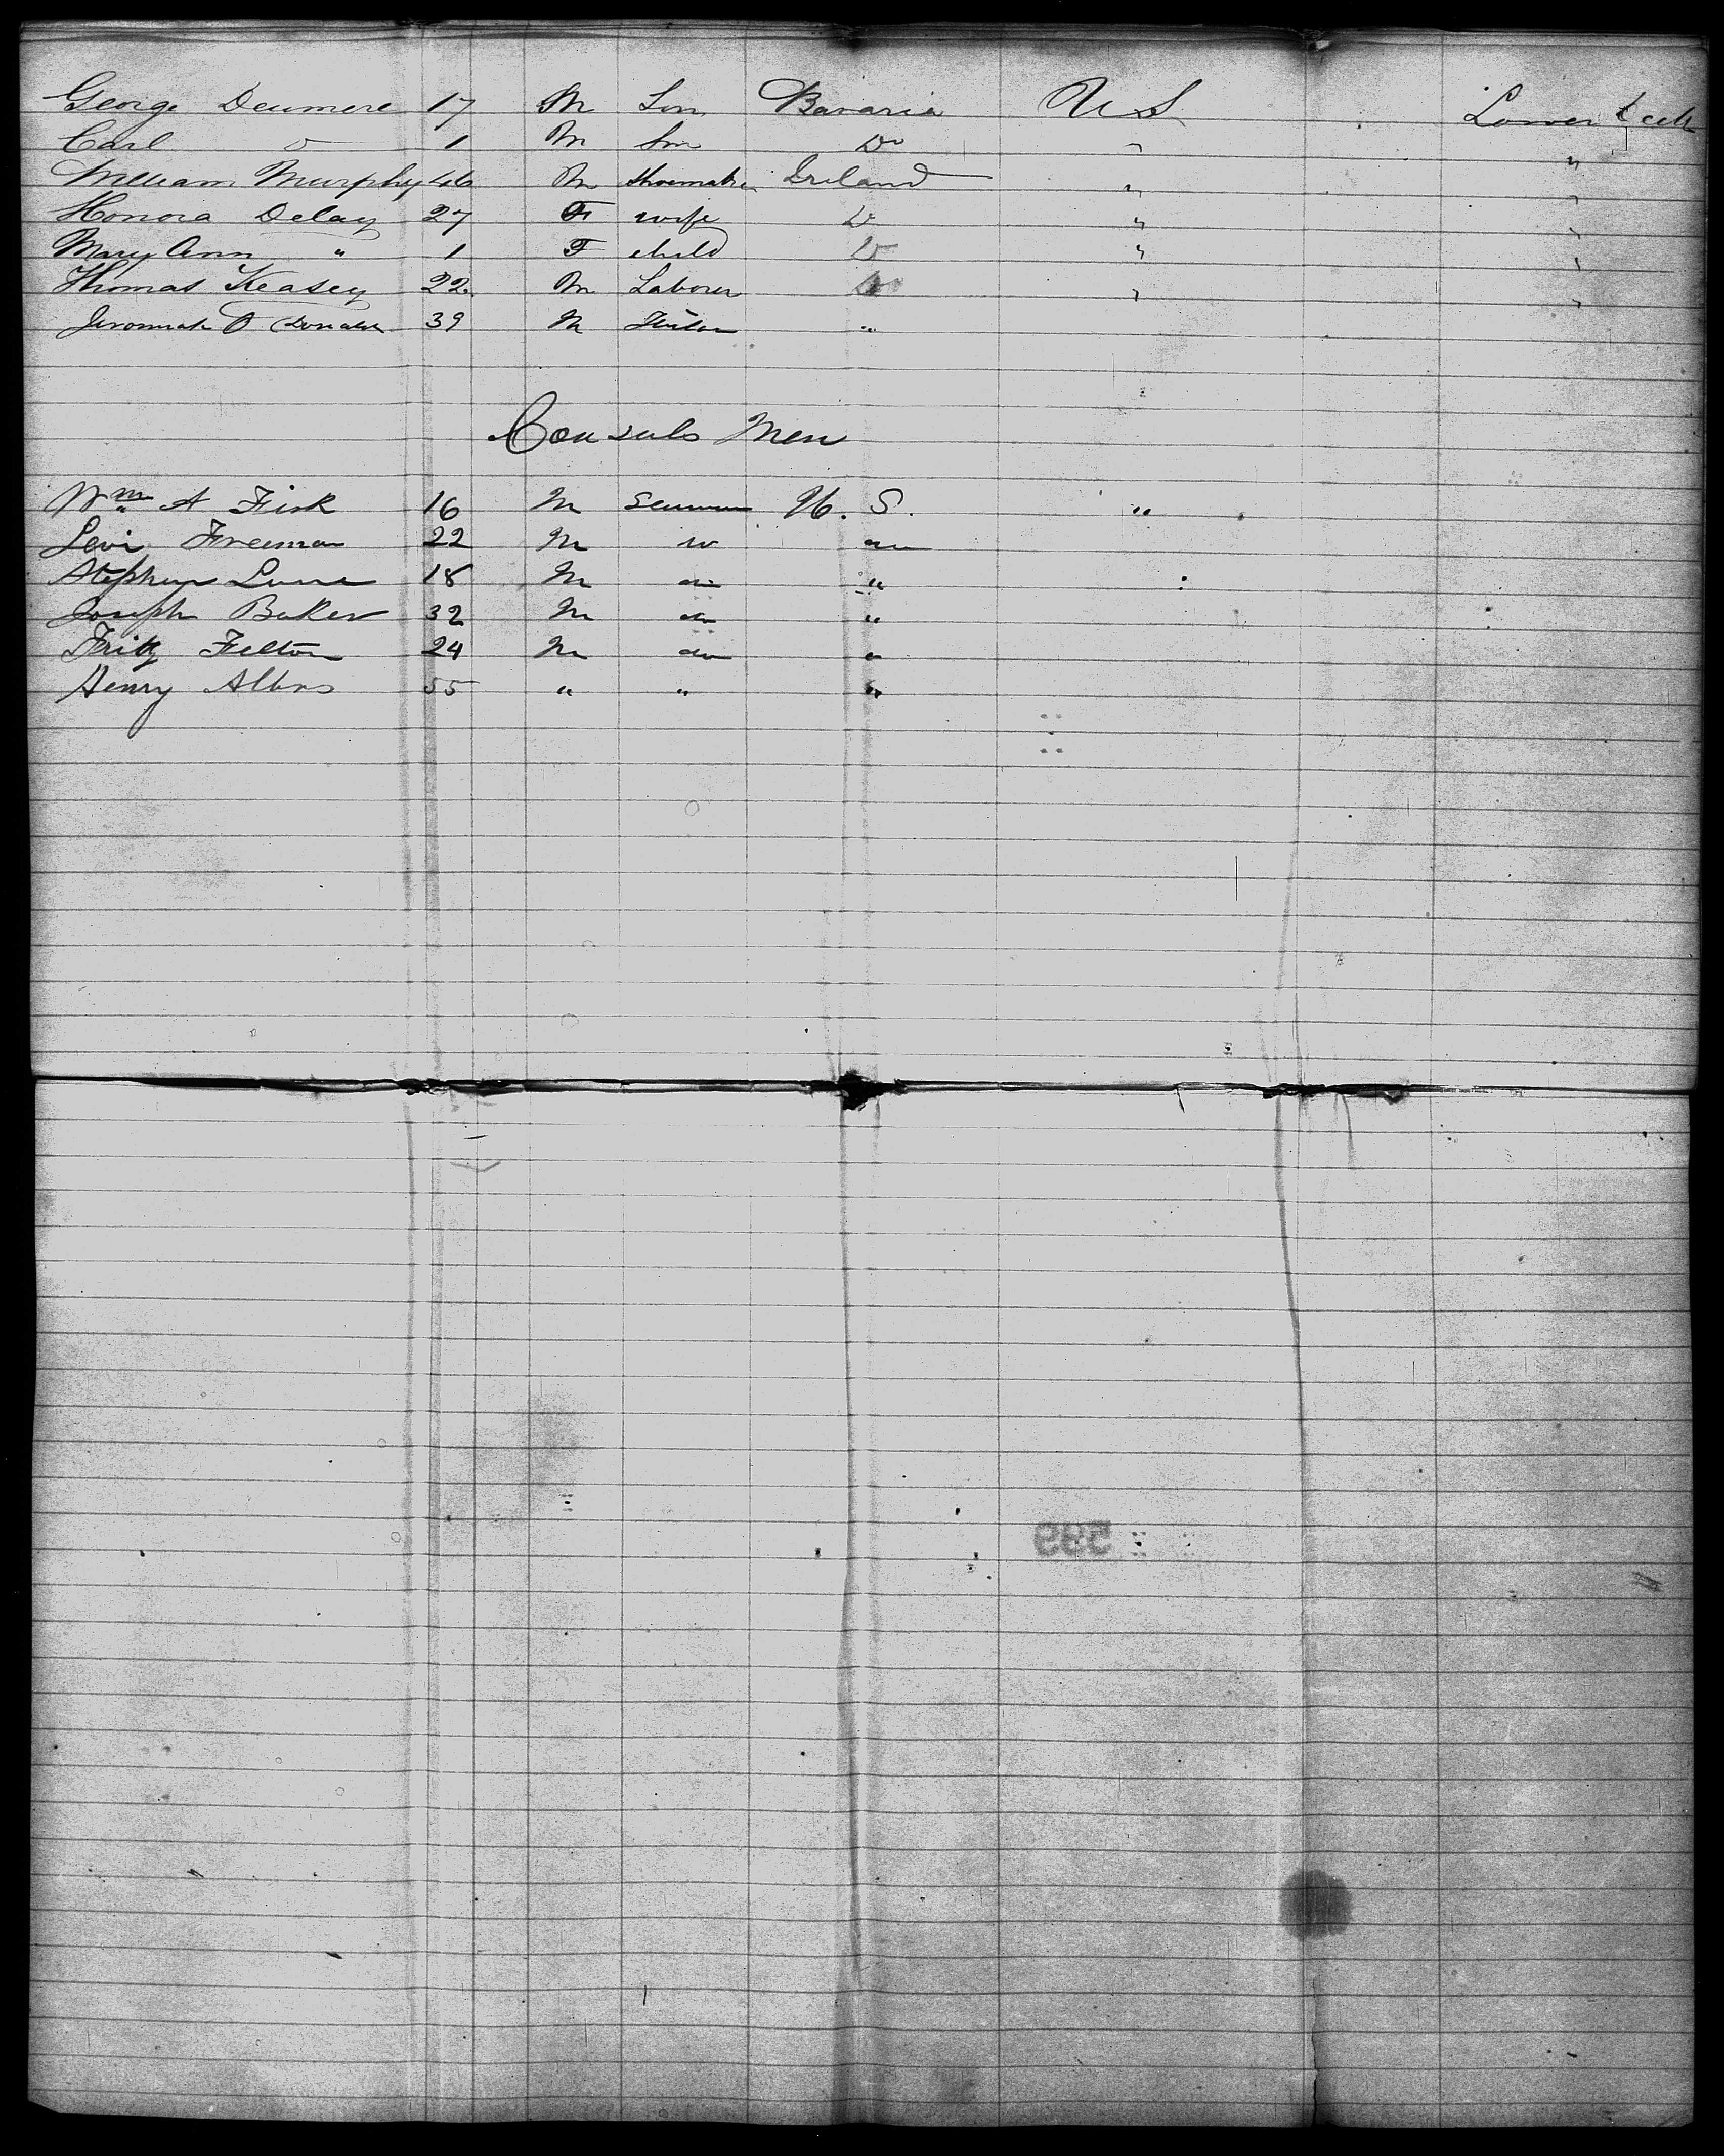 George Deumere 17 M Son Bavaria U S Lower
Carl 1 M Son Do " "
William Murphy 46 M Shoemaker Ireland " "
Honora Delay 27 F wife D " "
Mary Ann " 1 F child D " "
Thomas Keasey 22 M Laborer Do " "
Jeromiah O 39 M "
Consuls Men
Wm A Fisk 16 M Seaman U. S. "
Levi Freeman 22 M do do
Stephen 18 M do "
Joseph Baker 32 M do "
Fritz Felton 24 M do "
Henry 55 " " "
595